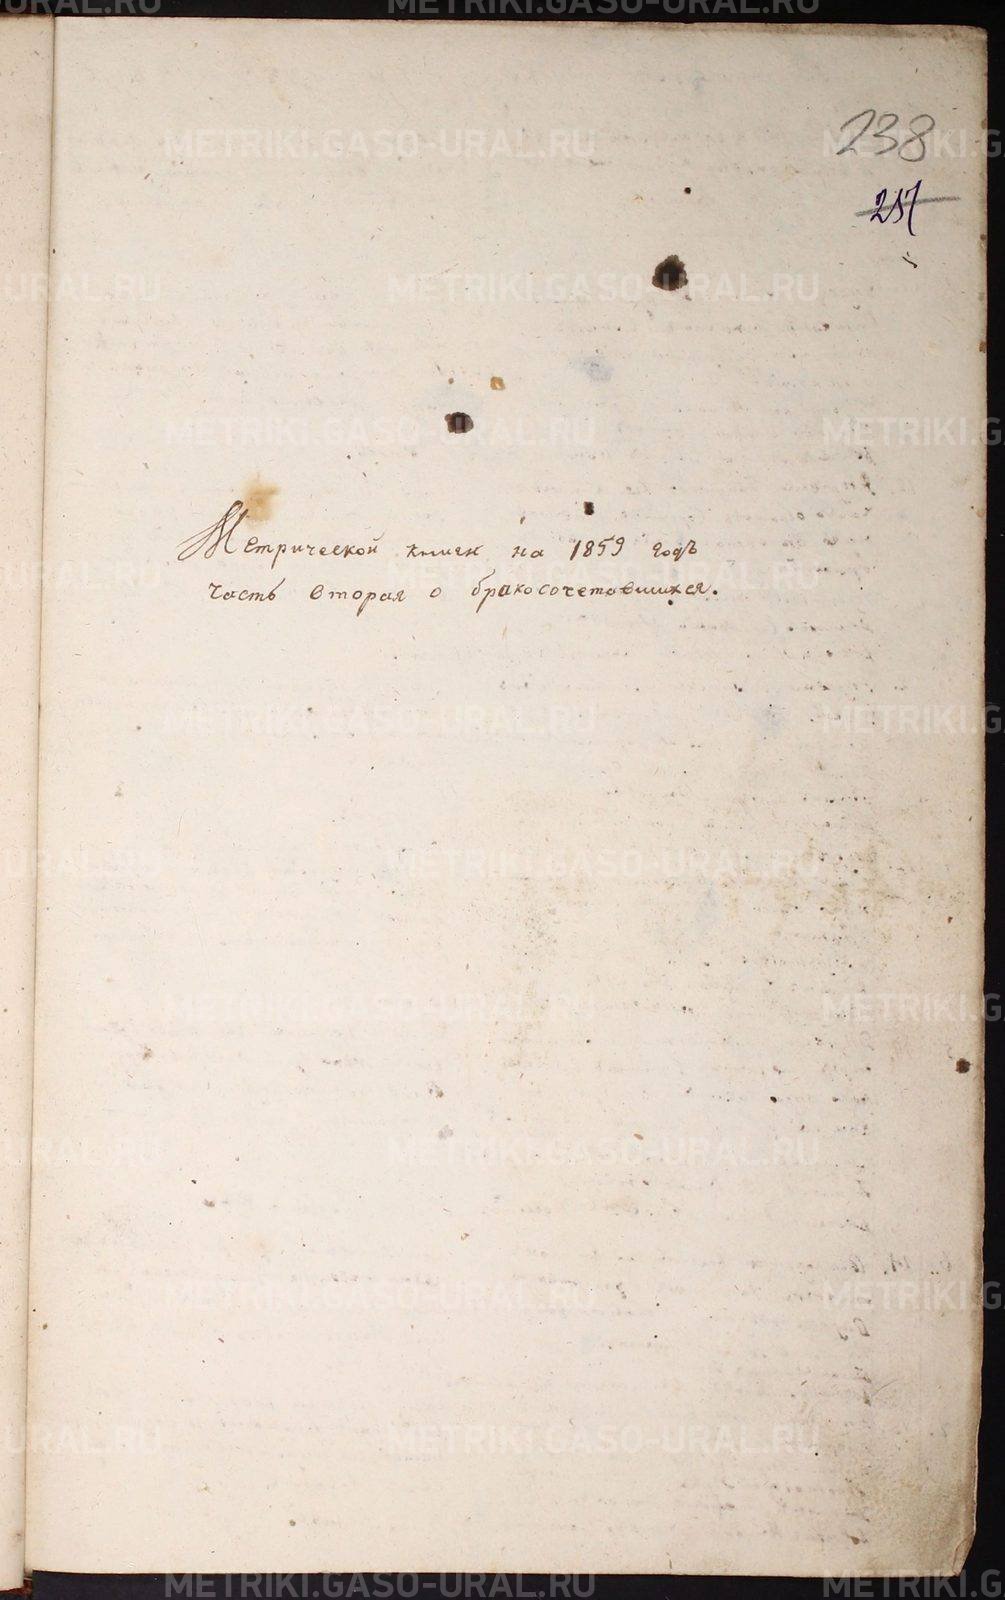 238
217
Метрической книги на 1859 годъ
часть вторая о бракосочетавшихся.
METRIKI.GASO-URAL.RU